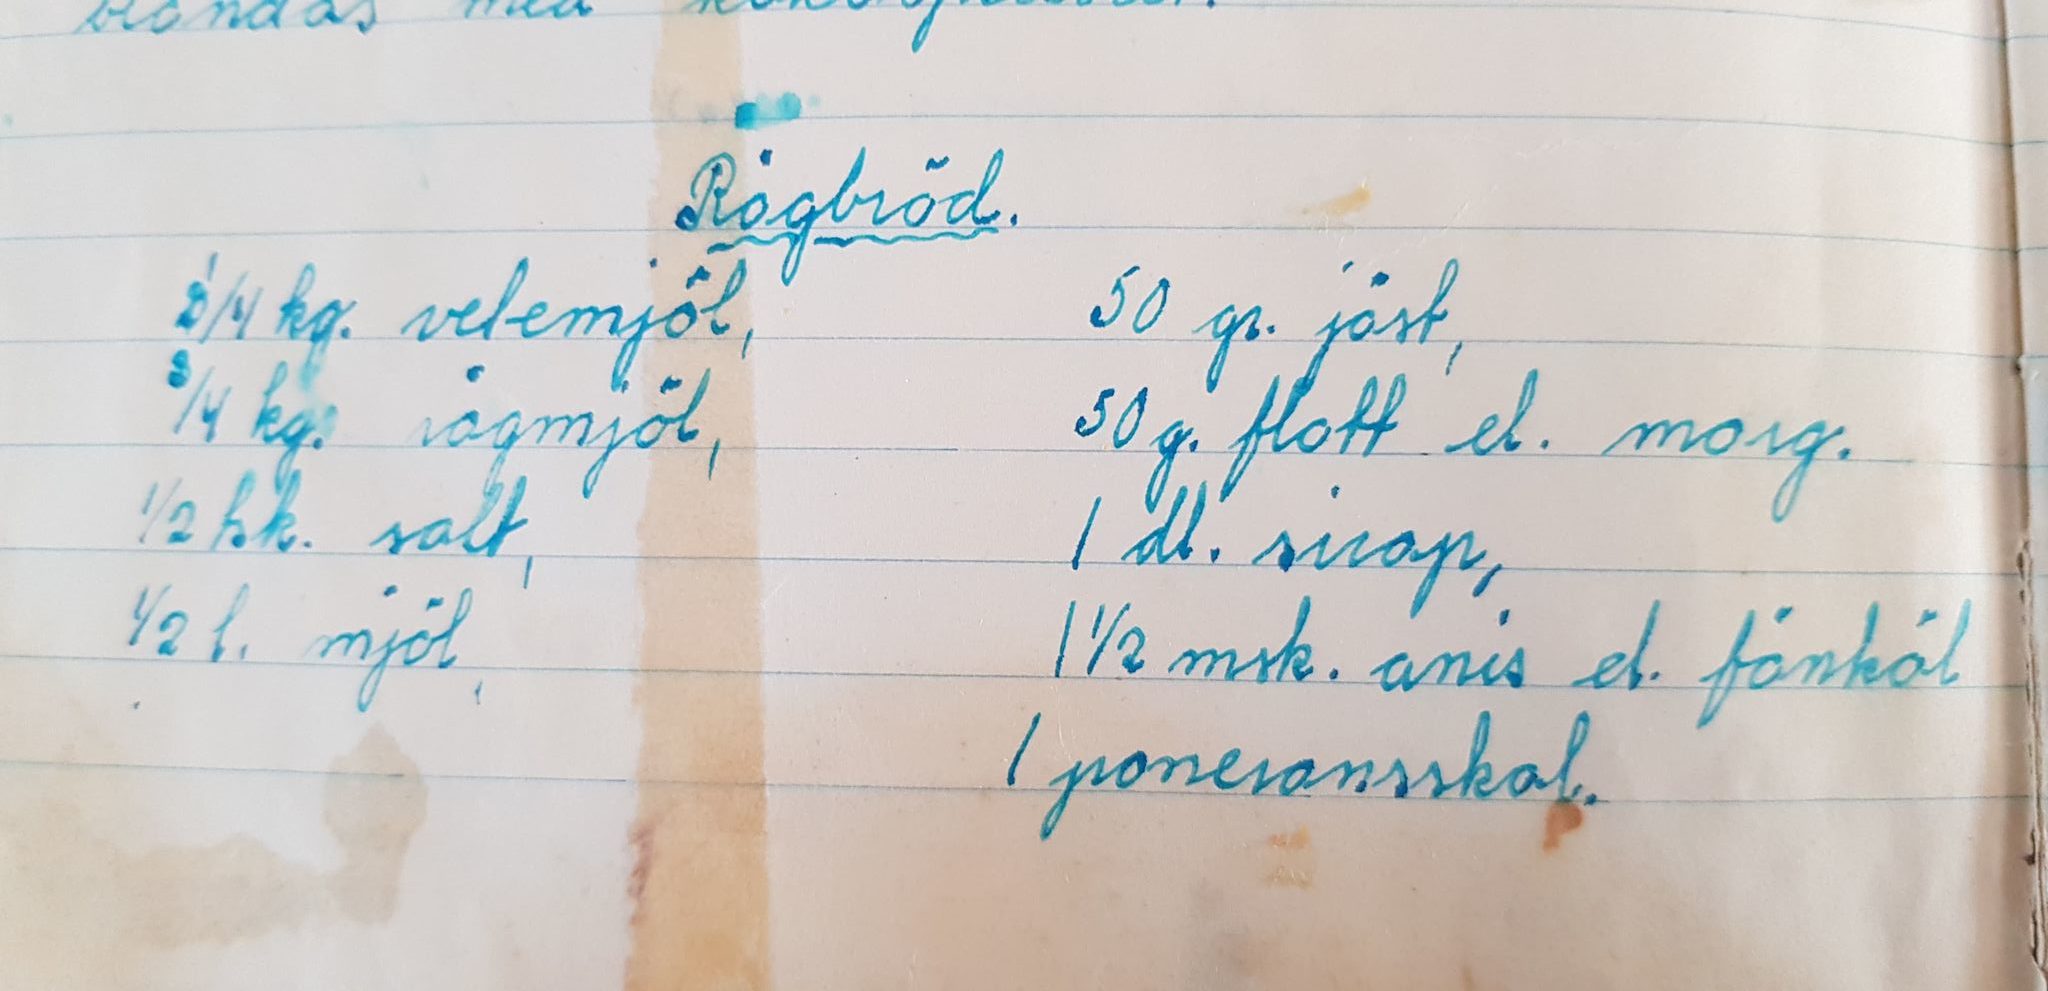 blandas med
Rågbröd.
1/4 kg. vetemjöl,
3/4 kg. rågmjöl,
1/2 tsk. salt,
1/2 l. mjöl,
50 gr. jäst,
50 g. flott el. marg.
1 dl. sirap,
1 1/2 msk. anis el. fänkål
1 poneransskal.